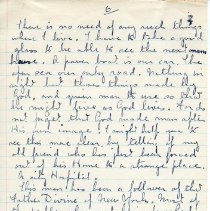 6
3
There is no need of any such things
where I live. I have to take a
glass to be able to see the next
house. A power boat is our car. The
sea our only road. Nature in
sight is these things made by
God, and given man to use so that
we might live as God lives. For do
not forget that God made man after
His own image. I might help you to
see this more clear by telling of my
old friend who has just been forced
out of his Home to a strange place
This man has been a follower of
Father Divine of New York. Most of